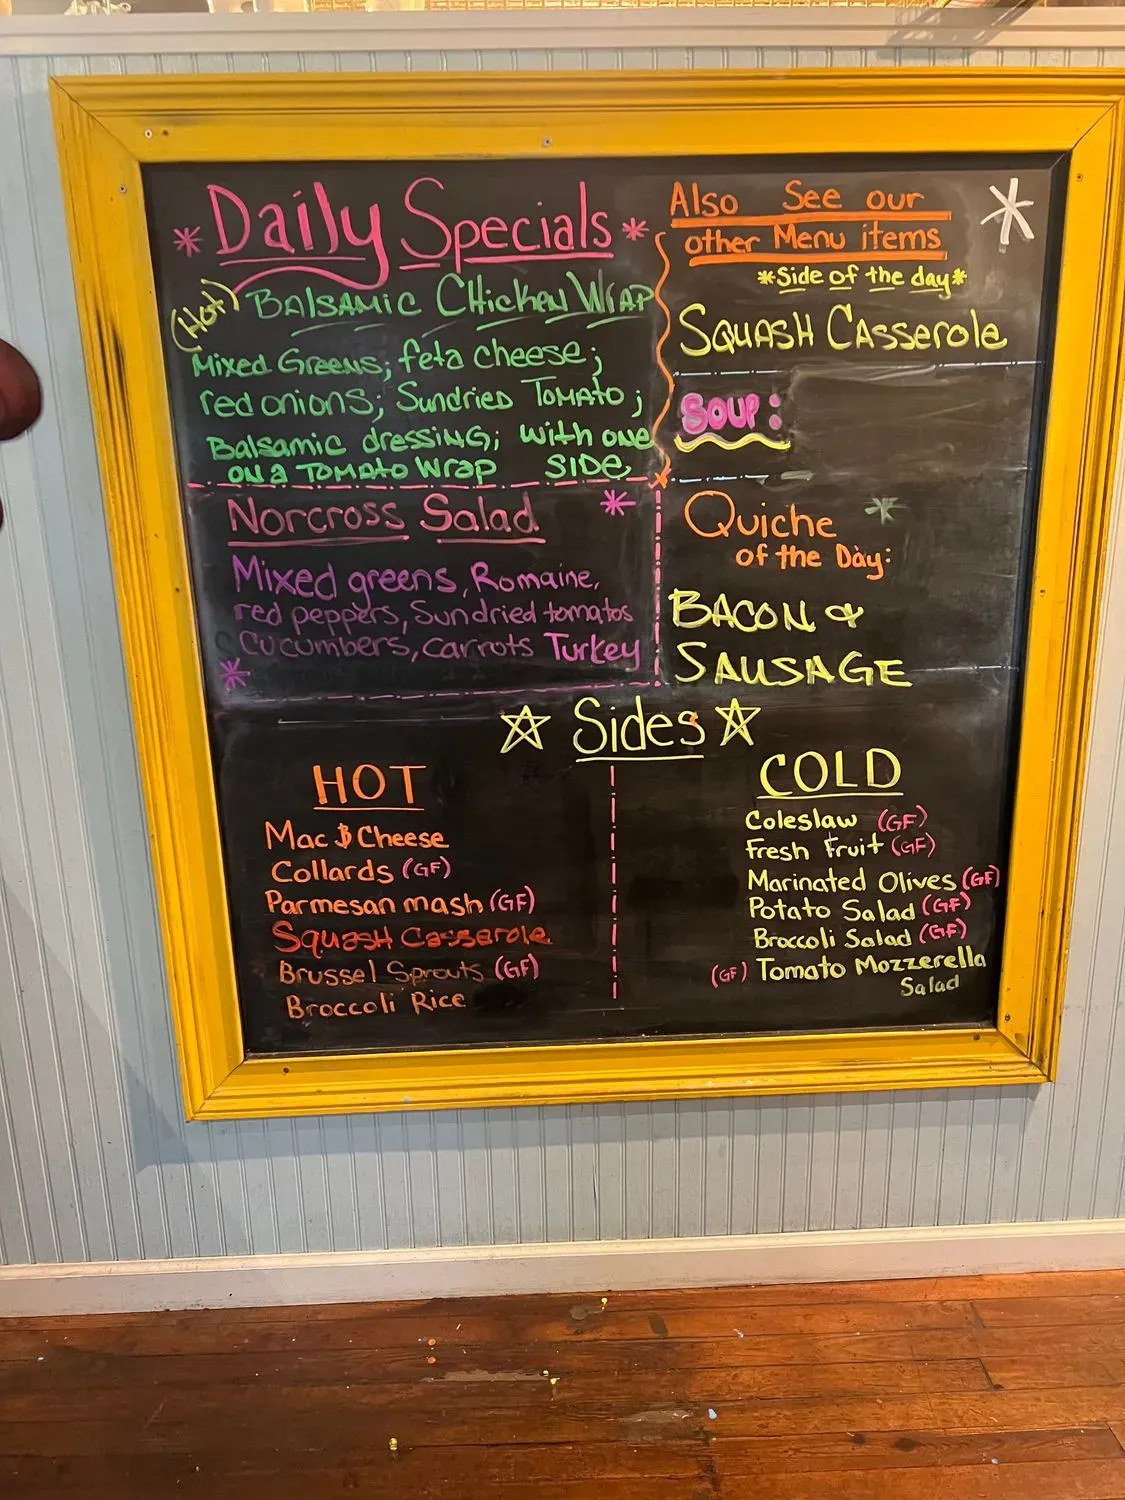 *Daily Specials*
(Hot) BALSAMIC CHicKeN WrAP
Mixed Greens; feta cheese;
red onions; Sundried TOMATO;
Balsamic dressiNG; with one
on a TOMAto Wrap SIDe
Norcross Salad *
Mixed greens, Romaine,
red peppers, Sundried tomatos
Cucumbers, carrots Turkey
*
Also See our
other Menu items
*
*Side of the day*
SQUASH CAsserole
SOUP:
Quiche *
of the Day:
BACON &
SAUSAGE
☆ Sides ☆
HOT
Mac & Cheese
Collards (GF)
Parmesan mash (GF)
SquasH Casserole
Brussel Sprouts (GF)
Broccoli Rice
COLD
Coleslaw (GF)
Fresh Fruit (GF)
Marinated Olives (GF)
Potato Salad (GF)
Broccoli Salad (GF)
(GF) Tomato Mozzerella
Salad